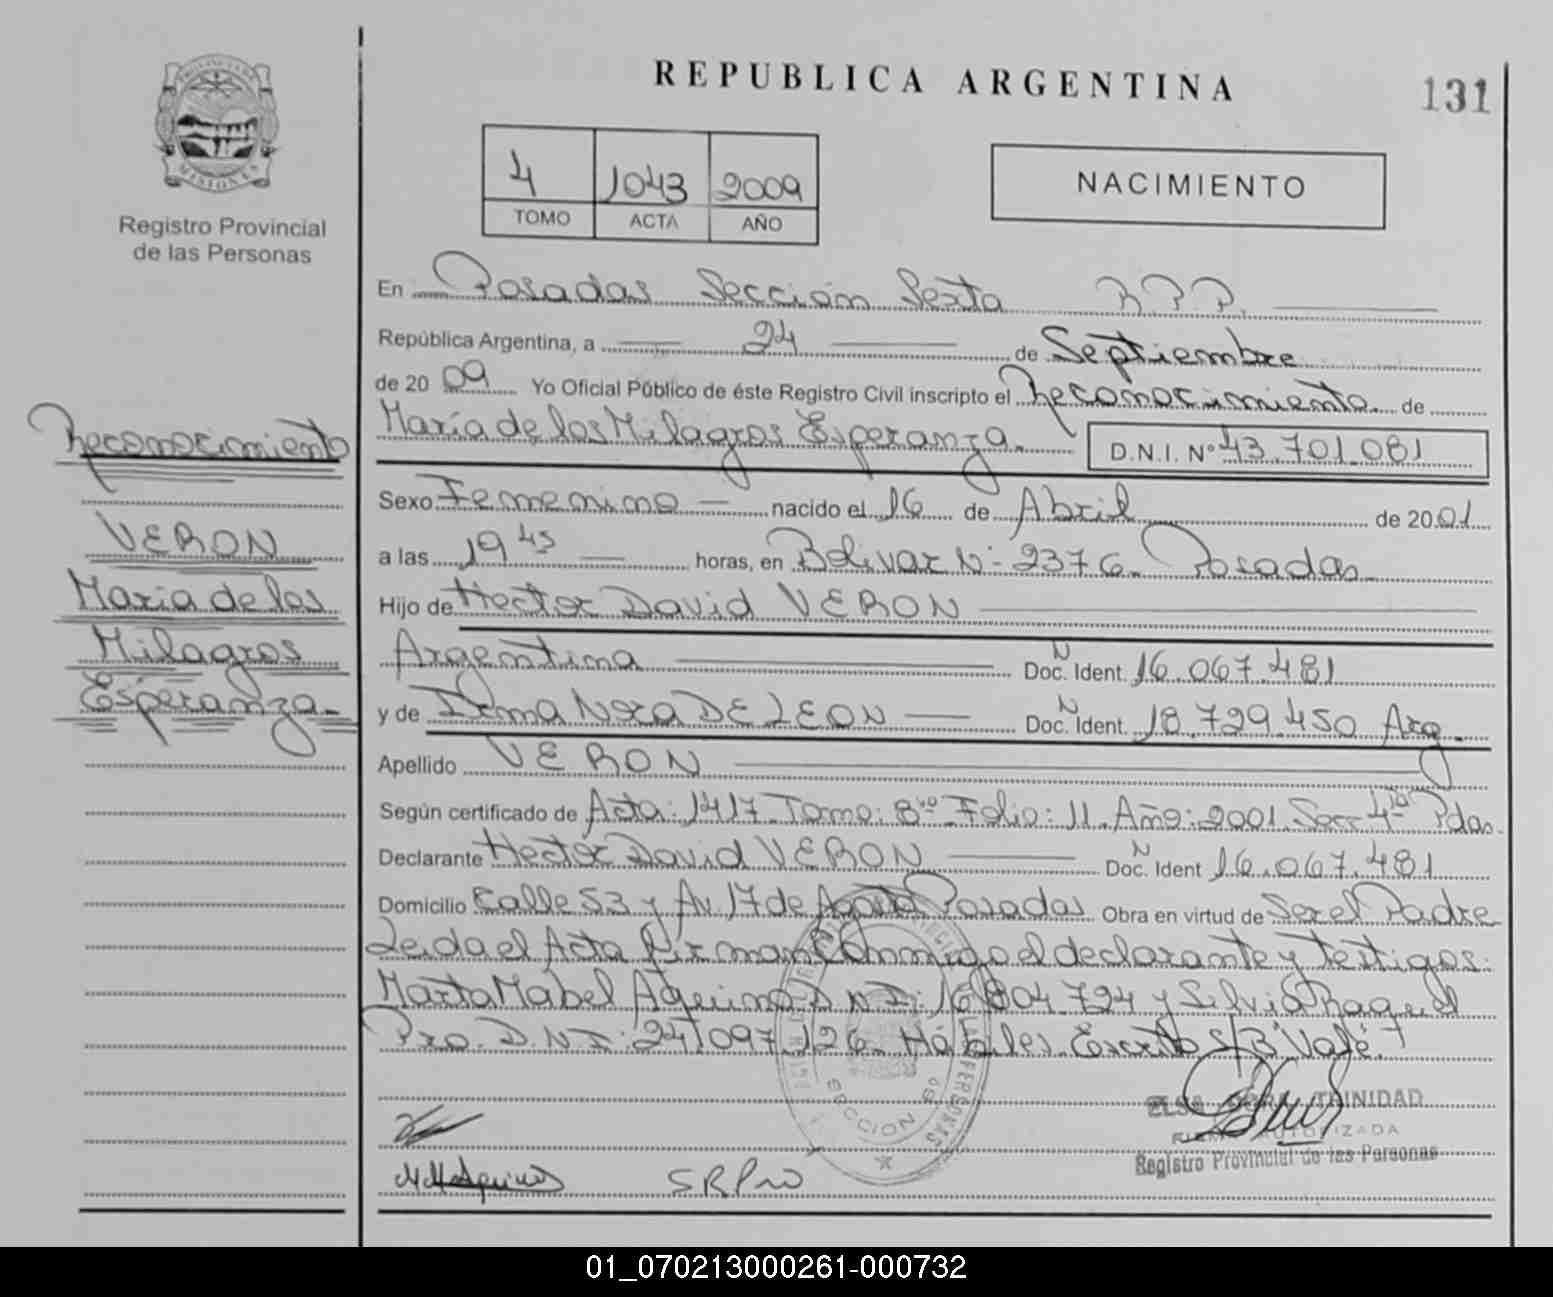 REPUBLICA ARGENTINA
131
PROVINCIA DE
MISIONES
Registro Provincial
de las Personas
4 1043 2009
TOMO ACTA AÑO
NACIMIENTO
En Posadas Sección Sexta R.P.P.
República Argentina, a 24 de Septiembre
de 2009 Yo Oficial Público de éste Registro Civil inscripto el Reconocimiento de
María de los Milagros Esperanza. D.N.I. Nº 43.701.081
Sexo Femenino nacido el 16 de Abril de 2001
a las 19 45 horas, en Bolivar Nº 2376. Posadas
Hijo de Hector David VERON
Argentina Doc. N Ident. 16.067.481
y de Irma Nora DE LEON Doc. N Ident. 18.729.450 Arg.
Apellido VERON
Según certificado de Acta: 1417. Tomo: 8vo Folio: 11. Año: 2001. Secc 4ta Pdas.
Declarante Hector David VERON Doc. N Ident 16.067.481
Domicilio Calle 53 y Av. 17 de Agosto Posadas Obra en virtud de Ser el Padre
Leida el Acta firman Conmigo el declarante y testigos:
Marta Mabel Aquino D.N.I: 16.804.724 y Silvia Raquel
Pro. D.N.I: 24.097.126. Hábiles. Escrito S/B "Vale"
Reconocimiento
VERON
Maria de los
Milagros
Esperanza.
SECCION 6º
TRINIDAD
FIRMA AUTORIZADA
Registro Provincial de las Personas
M M Aquino
S R Pro
01_070213000261-000732